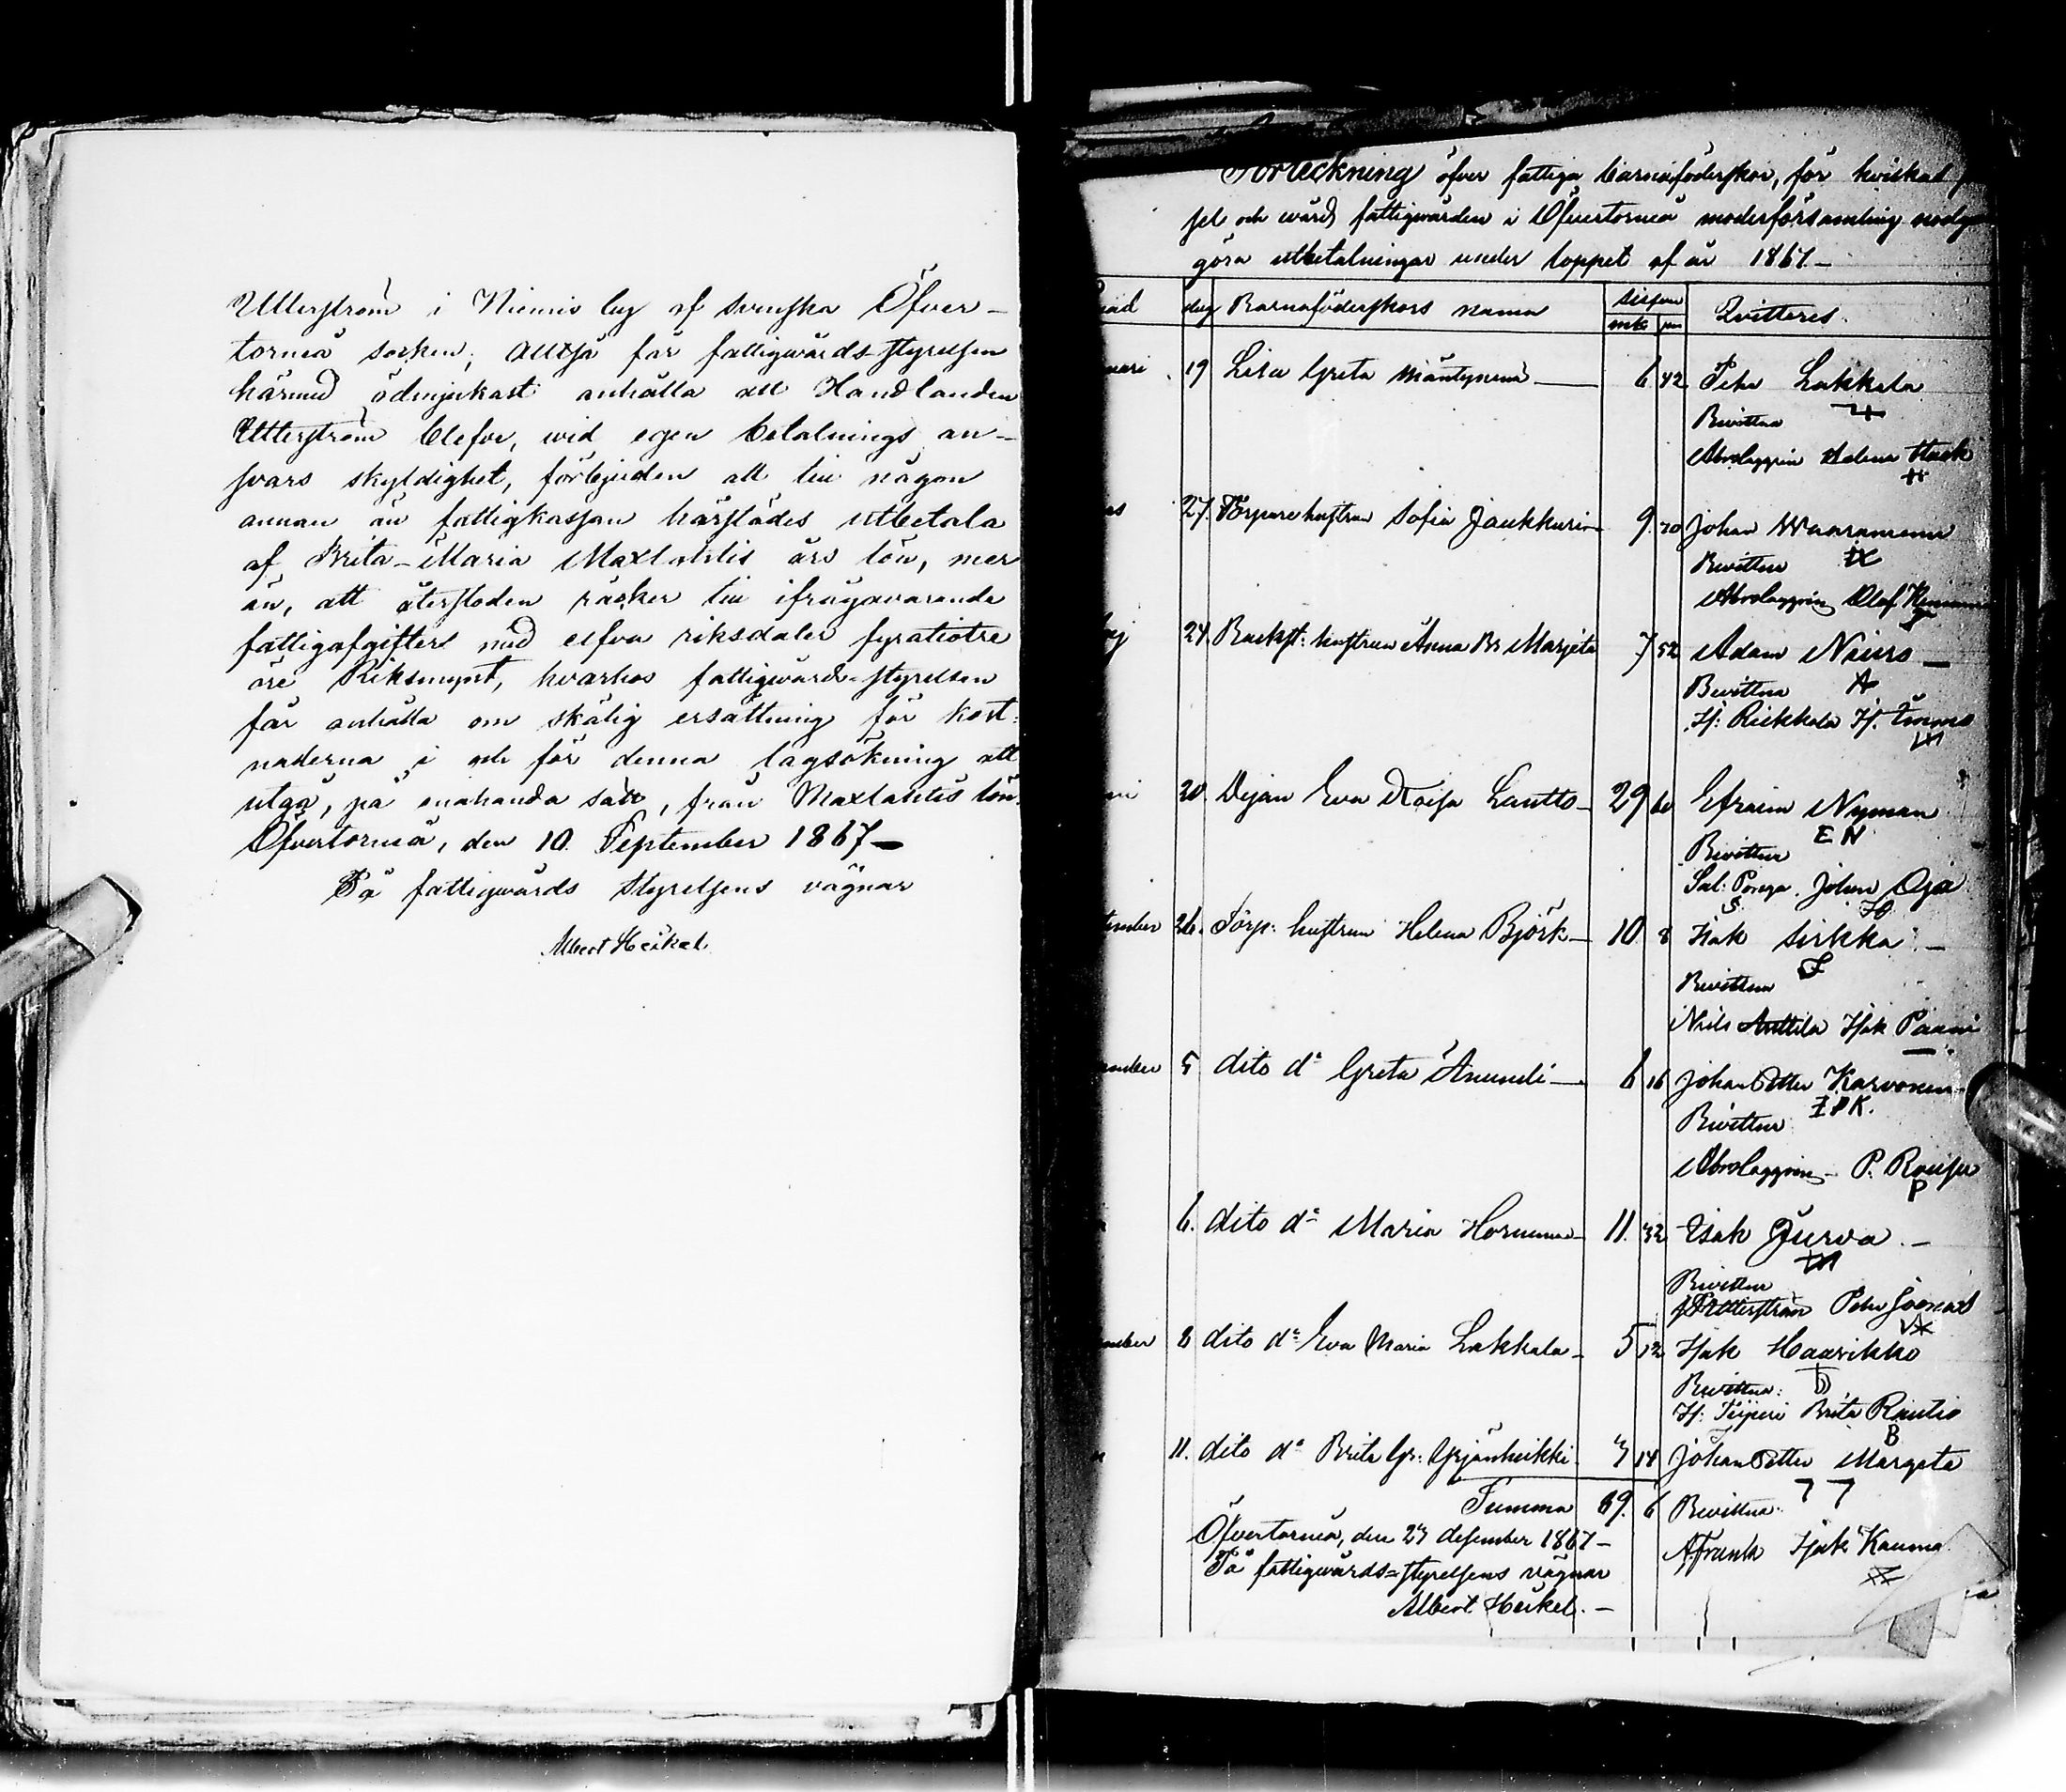 Utterström i Niemis by af svenska Öfver-
torneå socken; Alltså får fattigwårds-styrelsen
härmed ödmjukast anhålla att Handlanden
Utterström blefve, wid egen betalnings an-
svars skyldighet, förbjuden att till någon
annan än fattigkassan härstädes utbetala
af Brita-Maria Maxlahtis års lön, mer
än, att återstoden räcker till ifrågavarande
fattigafgifter med elfva riksdaler fyratiotre
öre Riksmynt, hvarhos fattigwårds-styrelsen
får anhålla om skälig ersättning för kost-
naderna i och för denna lagsökning att
utgå, på enahanda sätt, från Maxlahtis lön.
Öfvertorneå, den 10 September 1867 —
På fattigwårds Styrelsens vägnar
Albert Heikel
Förteckning öfver fattiga barnaföderskor, för hvilkas
sel och wård fattigwården i Öfvertorneå moderförsamling
göra utbetalningar under loppet af år 1867 —
dag Barnaföderskors namn mk pn Qvitteras.
19 Lisa Greta Mäntynenä — 6 42 Petter Lakkala
Bevittna
Abr. Lagggrin Helena Haak
27. Torparehustrun Sofia Jaukkuri — 9. 70 Johan Waaraniemi
Bevittna
Abr. Lagggrin Olof
24 Backst: hustrun Anna Br. Marjeta 7 52 Adam Niiro —
Bevittna A
H: Riekkola If. Timmo
20. Pigan Eva Kaisa Lantto — 29 60 Efraim Nyman
E N
Bevittna
Sal: Poryа. Johan Oja
26. Torp: hustrun Helena Björk — 10. 8 Isak Sirkka —
Bevittna
Nils Anttila Isak Paavi
5 dito do Greta Anundi — 6 16 Johan Petter Karvonen
I P K.
Bevittna
Abr Lagggrin — P. Rousu
P
6. dito do Maria Hornanen — 11. 32 Isak Jurva —
Bevittna
Utterström Petter Joonas
8 dito do Eva Maria Lakkala — 5 12 Isak Haarikko
Bevittna:
H: Teiperi Brita Rautio
B
11. dito do Brita Gr: Yrjänheikki 3 14 Johan Petter Margeta
Summa 89. 6 Bevittna:
A. Frank Isak Kauma
Öfvertorneå, den 27 desember 1867 —
På fattigwårds-styrelsens vägnar
Albert Heikel. —